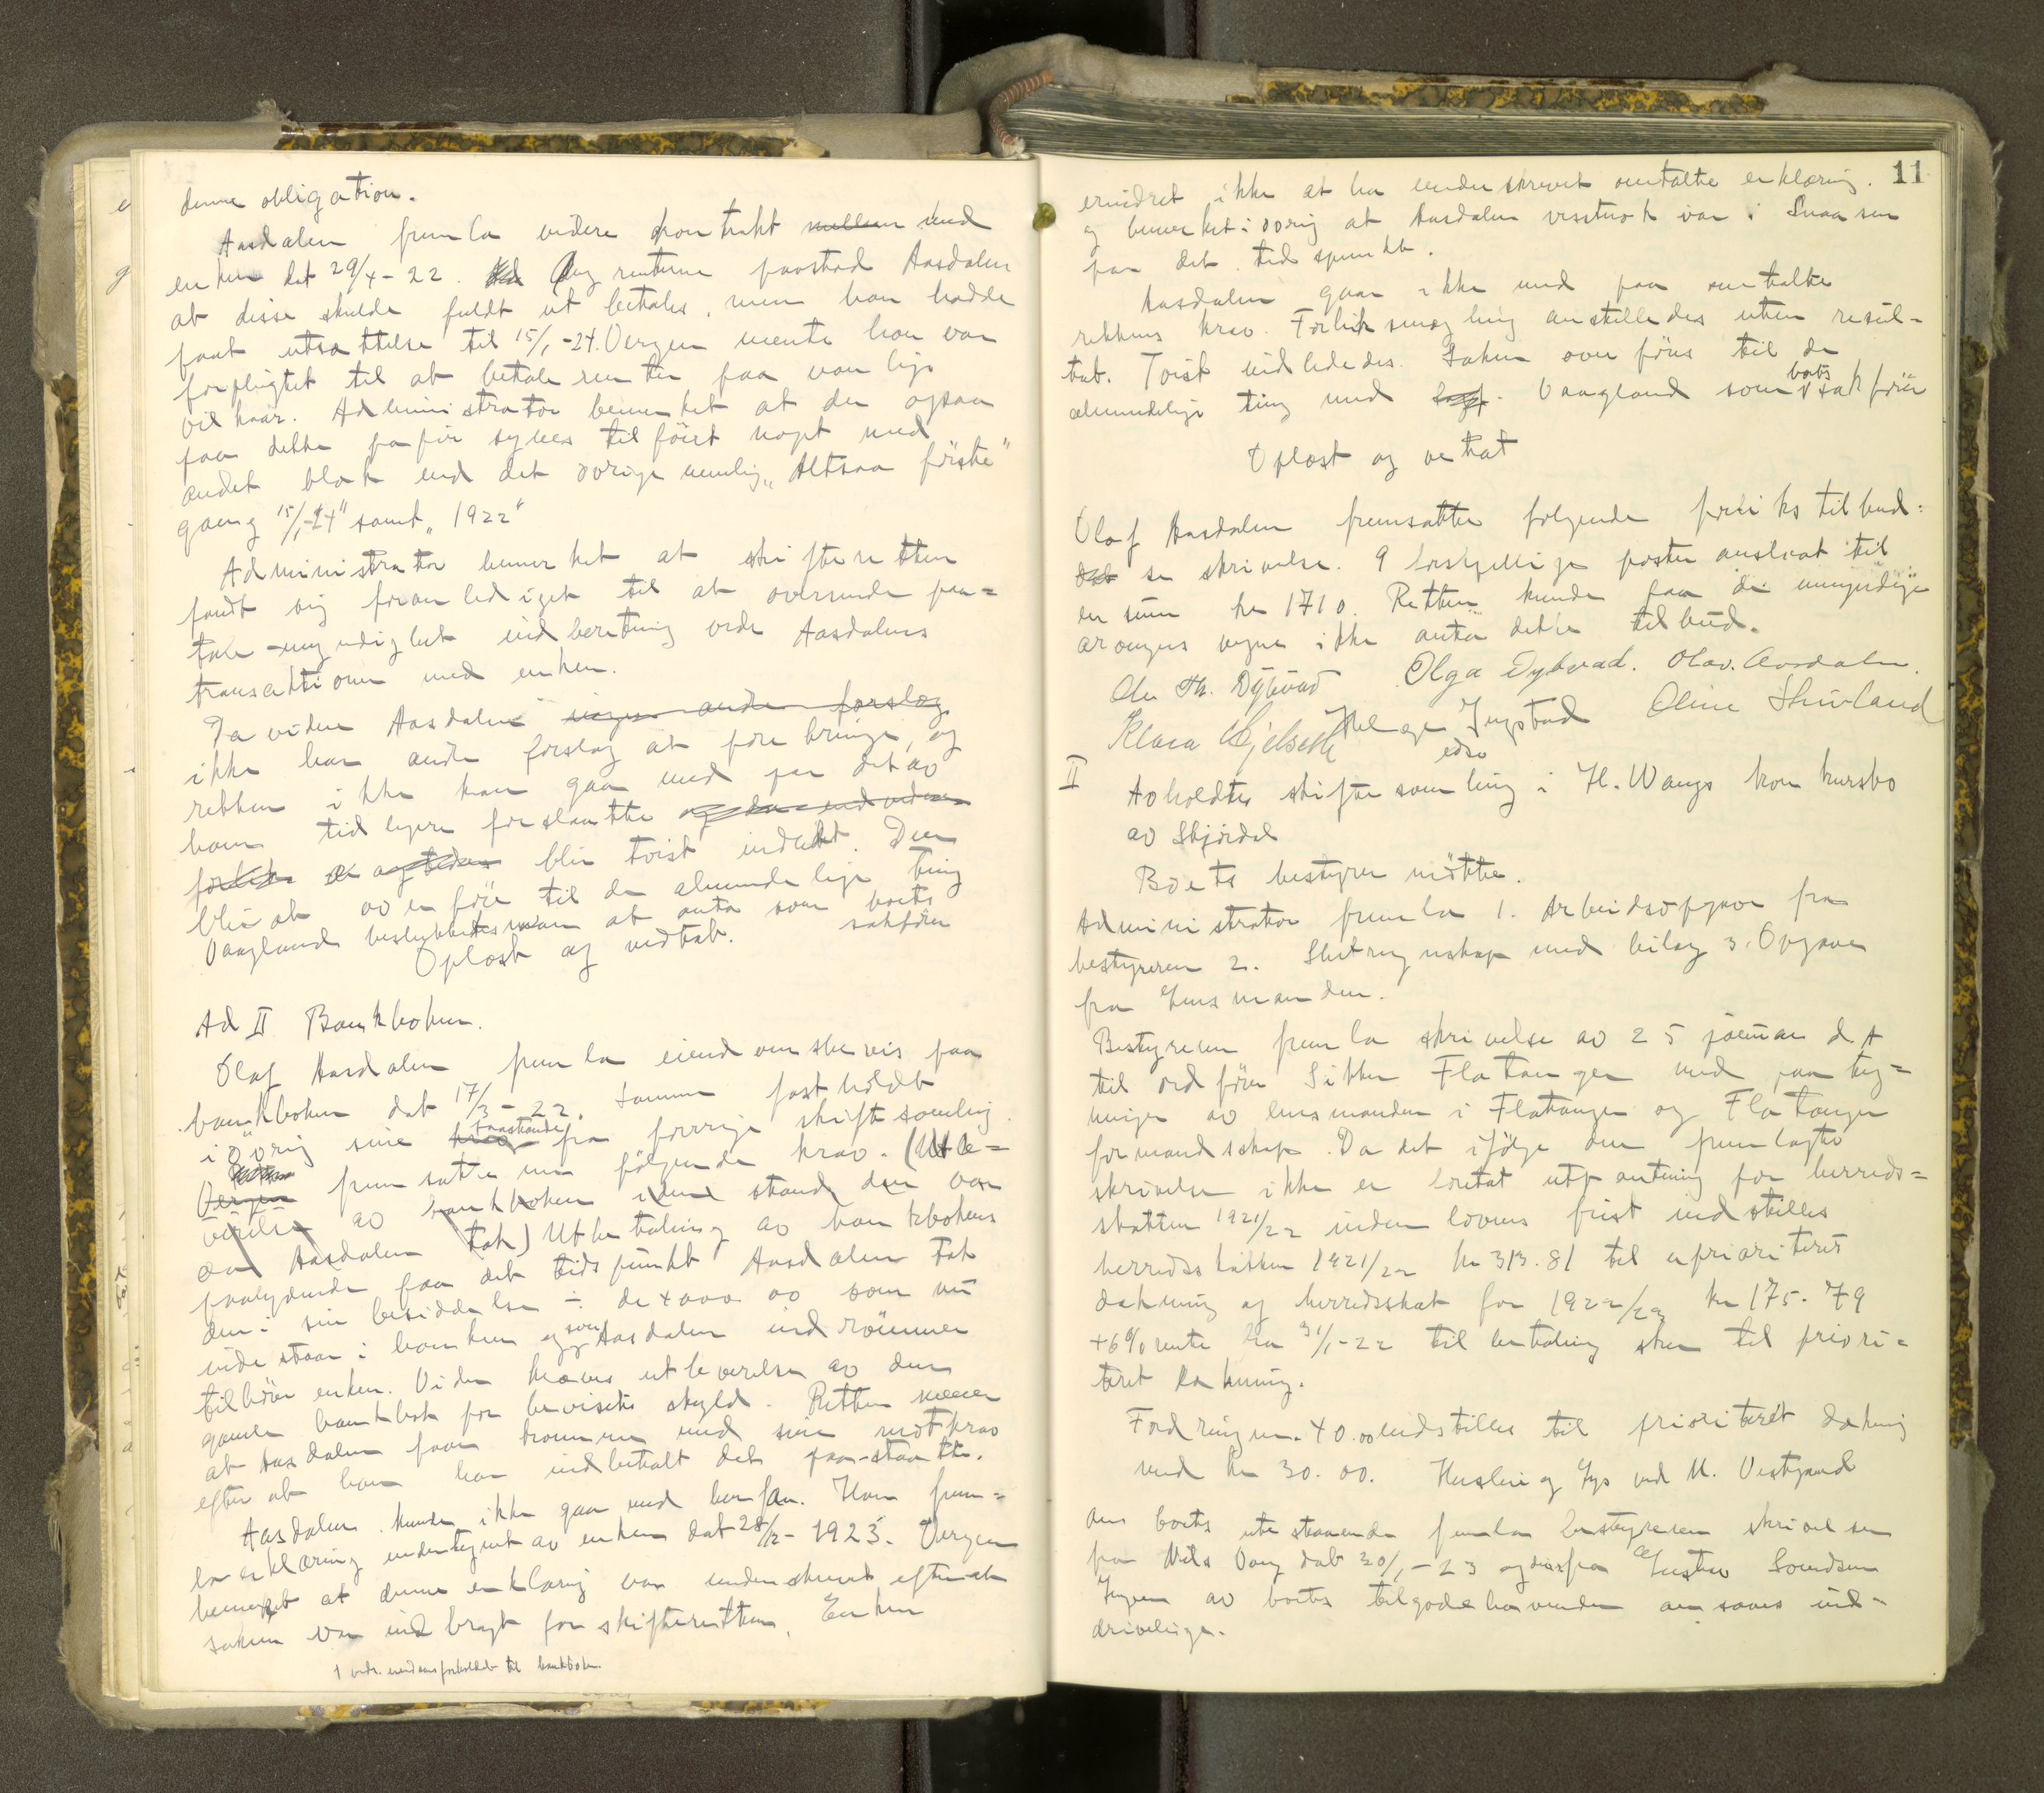 denne obligation.
Aasdalen fremla videre kontrakt mellem med
enken dat 29/4-22. Ang renterne paastod Aasdalen
at disse skulde fuldt ut betales, men han hadde
faat utsættelse til 15/1-24. Vergen mente han var
forpligtet til at betale renter paa vanlige
vilkaar. Administrator bemerket at der ogsaa
paa dette papir synes tilföiet noget med
andet blæk end det övrige nemlig "Altsaa förste"
gang 15/1-24" samt "1922"
Administrator bemerket at skifteretten
fandt sig foranlediget til at oversende paa=
tale-myndighet indberetning vedr Aasdalens
transaktioner med enken.
Da videre Aasdalen ingen andre forslag
ikke har andre forslag at forebringe, og
retten ikke kan gaa med paa det av
ham tidligere forslaatte
forlik blir tvist indledet. Den
blir at overföre til de almindelige ting
Vaagland besluttedes at anta som boets
sakförer
Oplæst og vedtat.
Ad II Bankboken.
Olaf Aasdalen fremla eiendomsbevis paa
bankboken dat 17/3-22. Samme fastholdt
iövrig sine krav paastande fra forrige skiftesamling.
Vergen Retten fremsatte nu fölgende krav. (Utle=
verelse av bankboken i den stand den var
da Aasdalen tok) Utbetaling av bankbokens
paalydende paa det tidspunkt Aasdalen tok
den i sin besiddelse ÷ de 4000 00 som nu
inde staar i banken og som Aasdalen indrömmer
tilhörer enken. Viden kræves utleverelse av den
gamle bankbok for bevisets skyld. Retten mener
at Aasdalen faar komme med sine motkrav
efter at han har indbetalt det paa-staatte.
Aasdalen kunde ikke gaa med herpaa. Han frem=
la erklæring undertegnet av enken dat 28/12-1923. Vergen
bemerket at denne erklæring var underskrevet efter at
saken var indbragt for skifteretten. Enken
1 vedr. eiendomsforholdet til bankboken.
11
erindret ikke at ha underskrevet omtalte erklæring.
og bemerket iövrig at Aasdalen visstnok var i Snaasen
paa det tidspunkt.
Aasdalen gaar ikke med paa omtalte
rettens krav. Forliksmægling anstilledes uten resul=
tat. Tvist indlededes. Saken overföres til de
almindelige ting med Vaagland som boets sakförer
Oplæst og vetat
Olaf Aasdalen fremsatte folgende forliks tilbud:
se skrivelse. 9 forskjellige poster anslaat til
en sum kr 1710. Retten kunde paa de umyndige
arvingers vegne ikke anta dette tilbud.
Ole Th. Dybvad Olga Dybvad. Olav. Aasdalen.
Klara Hjelseth Helge Ingstad Oline Skivland
edsv
II
Avholdtes skiftesamling i H. Wangs konkursbo
av Skjördal
Boets bestyrer mötte.
Administrator fremla 1. Arbeidsopgave fra
bestyreren 2. Slutregnskap med bilag 3. Opgave
fra lensmanden.
Bestyreren fremla skrivelse av 25 januar d A
til ordförer Sitter Flatanger med paateg=
ninger av lensmanden i Flatanger og Flatanger
formandskap. Da det ifölge den fremlagte
skrivelse ikke er foretat utpantning for herreds=
skatten 1921/22 inden lovens frist indstilles
herredsskatten 1921/22 kr 313.81 til uprioritert
dækning og herredsskat for 1922/23 kr 175.79
+6% rente fra 31/1-22 til betaling sker til priori=
teret dækning.
Fordringen. 40.00 indstilles til prioriteret dækning
med kr 30.00. Husleie og lys ved M. Vestgaard
Ang boets utestaaende fremla bestyreren skrivelse
fra Nils Vang dat 20/1-23 og dito fra Gustav Svendsen
Ingen av boets tilgodehavender ansaaes ind-
drivelige.